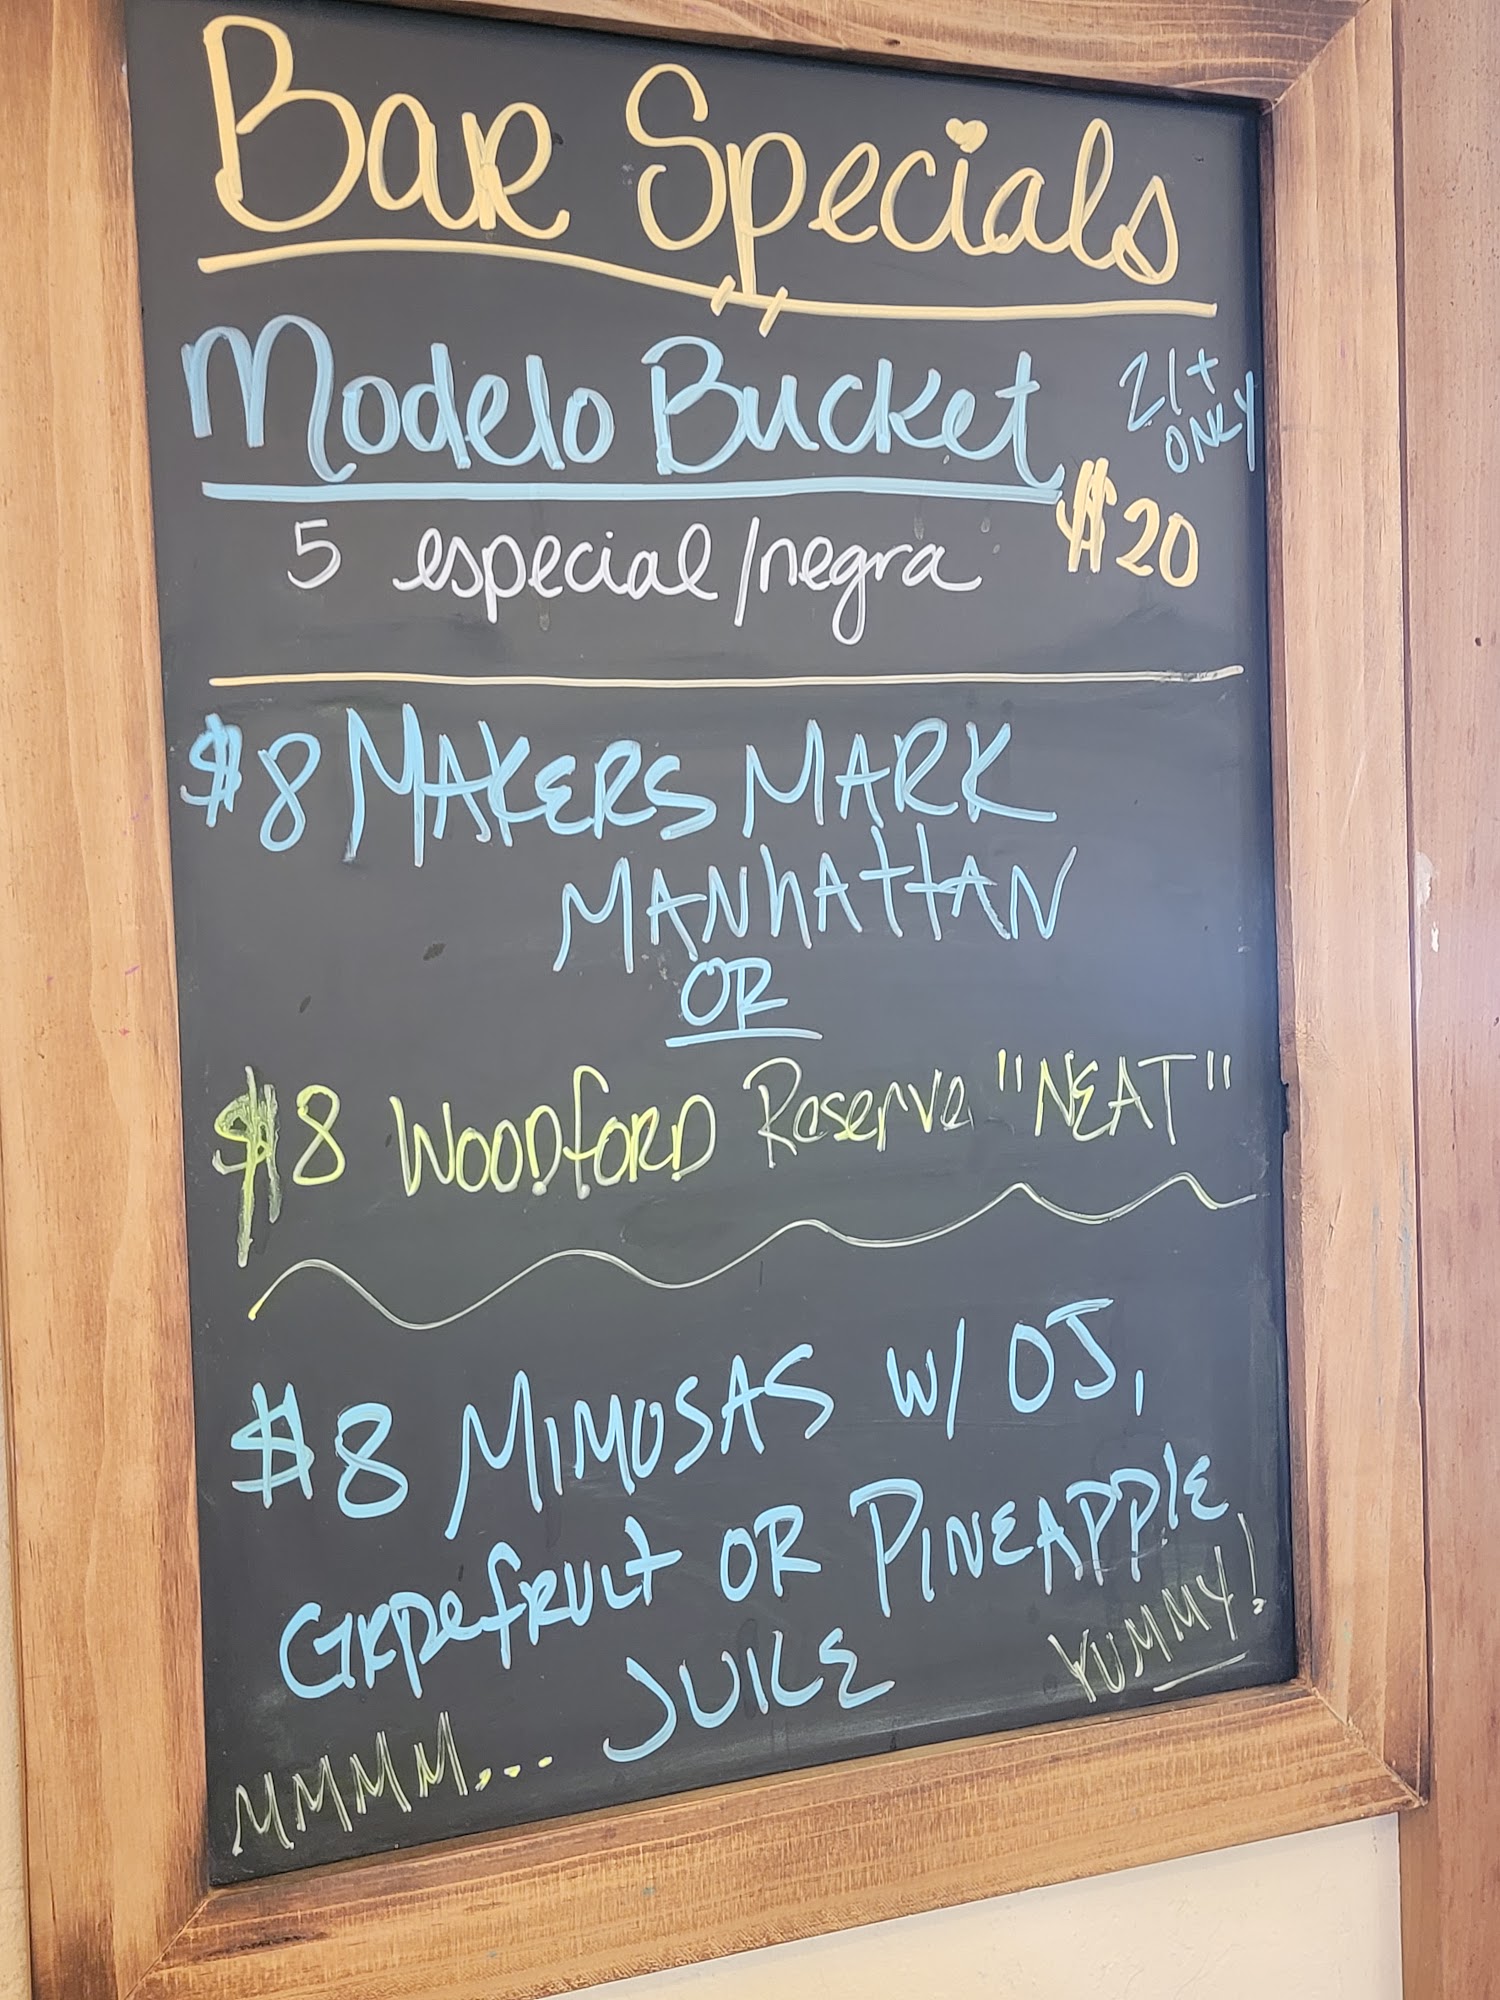 Bar Specials
Modelo Bucket
21+
ONLY
5 especial/negra
$20
$8 MAKERS MARK
MANhAttAN
OR
$8 WOODfORD Reserve "NEAT"
$8 MIMOSAS W/ OJ,
GRPefRUIt OR PINEAPPlE
JUICE
MMMM... YUMMY!